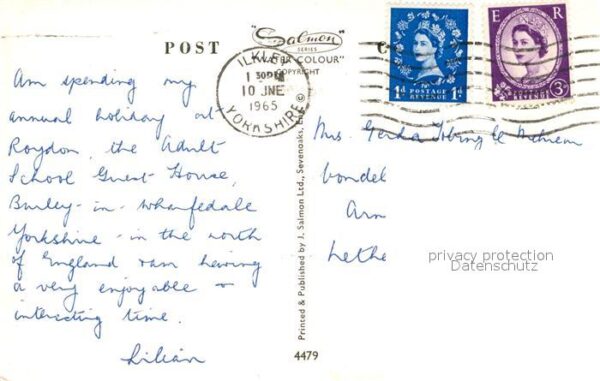 POST
C
"Salmon"
SERIES
"WATER COLOUR"
COPYRIGHT
ILKLEY
1 30PM
10 JNE
1965
YORKSHIRE
E R
1d POSTAGE 1d
REVENUE
3d
POSTAGE
REVENUE
Am spending my
annual holiday at
Roydon, the Adult
School Guest House,
Burley-in-Wharfedale
Yorkshire - in the north
of England & am having
a very enjoyable &
interesting time.
Lilian
Mrs. Gerda
Vondel
Arn
Nethe
privacy protection
Datenschutz
Printed & Published by J. Salmon Ltd., Sevenoaks, Eng. ©
4479